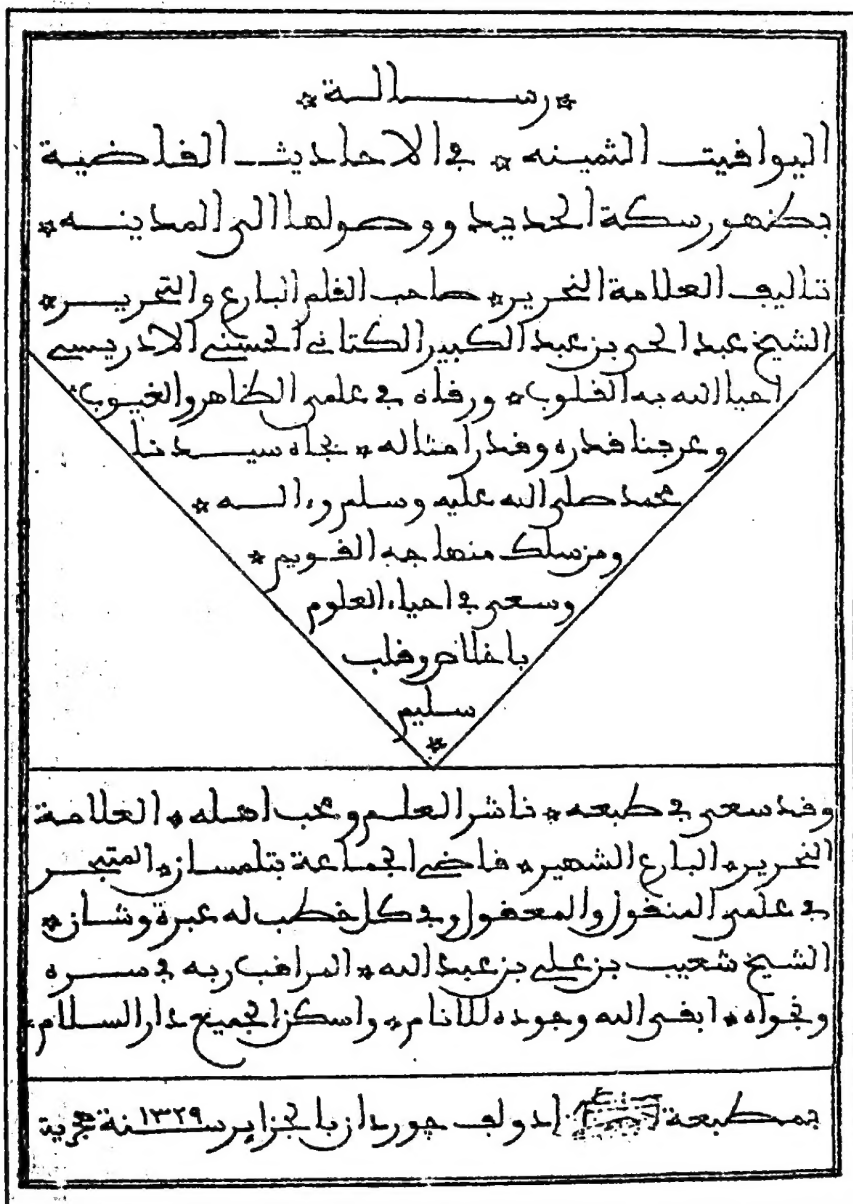 *رســـالـة*
اليواقيت الثمينه * في الاحاديث القاضية
بظهور سكة الحديد ووصولها الى المدينــه *
تاليف العلامة النحرير * صاحب القلم البارع والتحريــر *
الشيخ عبد الحي بن عبد الكبير الكتاني الحسني الادريسي
احيا الله به القلوب * ورقاه في علمي الظاهر والغيـوب *
وعرفنا قدره وقدر امثاله * بجاه سيـدنـا
محمد صلى الله عليه وسلم وءالـــه *
ومن سلك منهاجه القـويم *
وسعى في احياء العلوم
باخلاص وقلب
سليم
*
وقد سعى في طبعه * ناشر العلـم ومحب اهـله * العلامـة
النحرير * البارع الشهير * قاضي الجمـاعة بتلمسـان * المتبحـر
في علمي المنقول والمعقول وفي كل خطب له عبرة وشـان *
الشيخ شعيب بن علي بن عبد الله * المراقب ربه في ســره
ونجواه * ابقى الله وجوده للانام * واسكن الجميع دار السـلام *
بمطبعة ادولف جوردان بالجزاير ســنة ١٣٢٩ هجرية